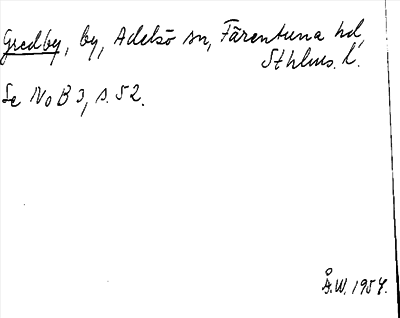 Gredby, by, Adelsö sn, Färentuna hd,
Sthlms. l.
Se NoB 3, s. 52.
Å.W. 1954.